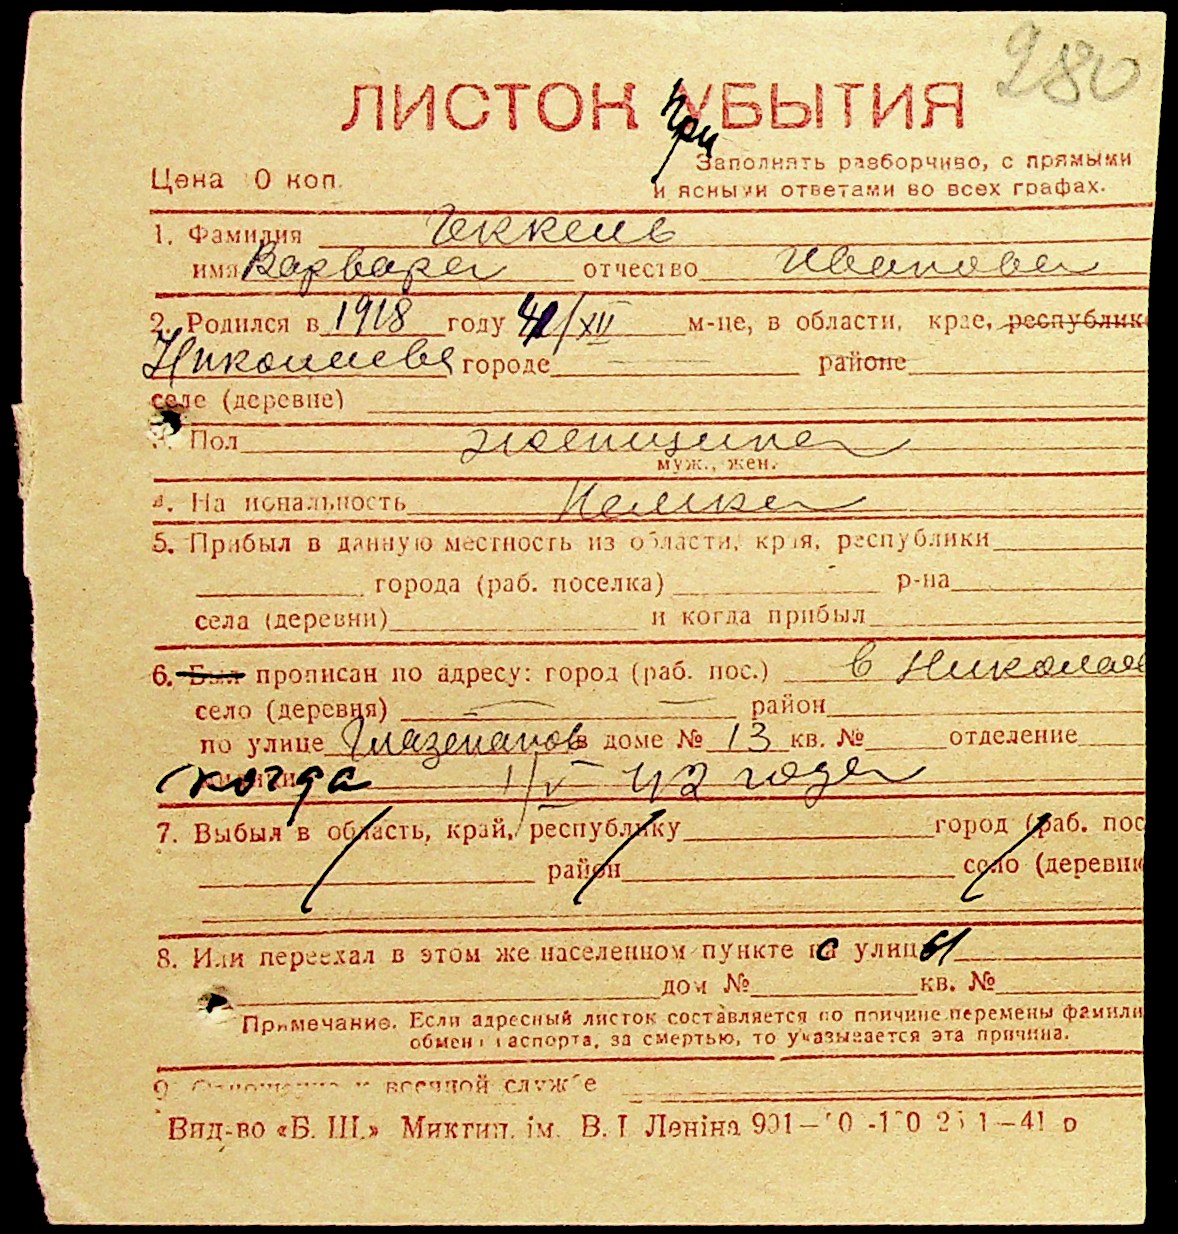 280
ЛИСТОК при УБЫТИЯ
Цена 0 коп.
Заполнять разборчиво, с прямыми
и ясными ответами во всех графах.
1. Фамилия Геккель
имя Варвара отчество Иванова
2. Родился в 1918 году /XII м-це, в области, крае, республик
Николаева городе районе
селе (деревне)
Пол женщина
муж., жен.
4. На иональность Немка
5. Прибыл в данную местность из области, края, республики
города (раб. поселка) р-на
села (деревни) и когда прибыл
6. Был прописан по адресу: город (раб. пос.) в Николаев
село (деревня) район
по улице в доме № 13 кв. № отделение
когда 1/V 42 года
7. Выбыл в область, край, республику город (раб. пос
район село (деревню
8. Или переехал в этом же населенном пункте с улицы
дом № кв. №
Примечание. Если адресный листок составляется по причине перемены фамили
обмен паспорта, за смертью, то указывается эта причина.
9. Отношение к военной службе
Вид-во «Б. Ш.» Миктип. ім. В. І Леніна